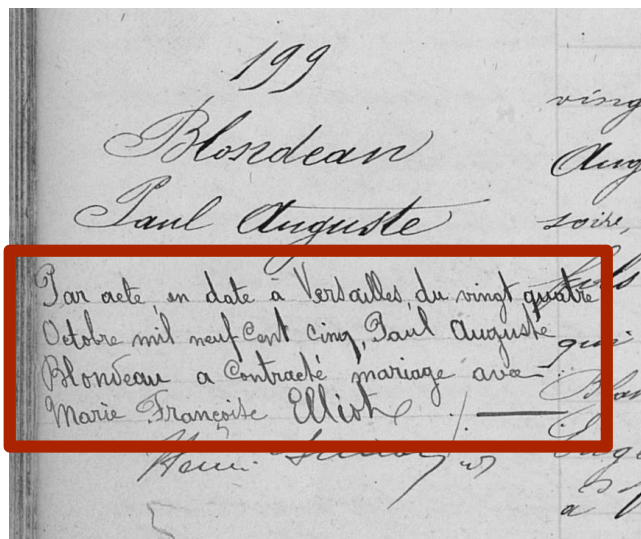 199
Blondeau
Paul Auguste
Par acte en date à Versailles du vingt quatre
Octobre mil neuf Cent cinq, Paul Auguste
Blondeau a Contracté mariage avec
Marie Françoise Elliot
ving
Aug
soire,
fils
qui
Blan
Euge
a